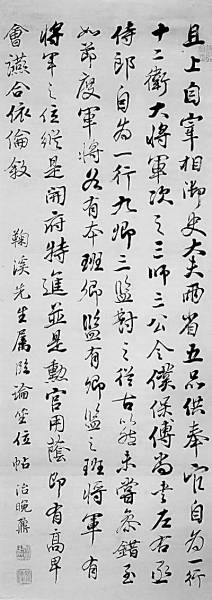 且上自宰相御史大夫兩省五品供奉官自為一行
十二衛大將軍次之三師三公令僕保傅尚書左右丞
侍郎自為一行九卿三監對之從古以然未嘗參錯至
如節度軍將各有本班卿監有卿監之班將軍有
將軍之位縱是開府特進並是勳官用蔭即有高卑
會讌合依倫敘
鞠溪先生屬臨論坐位帖 治晚